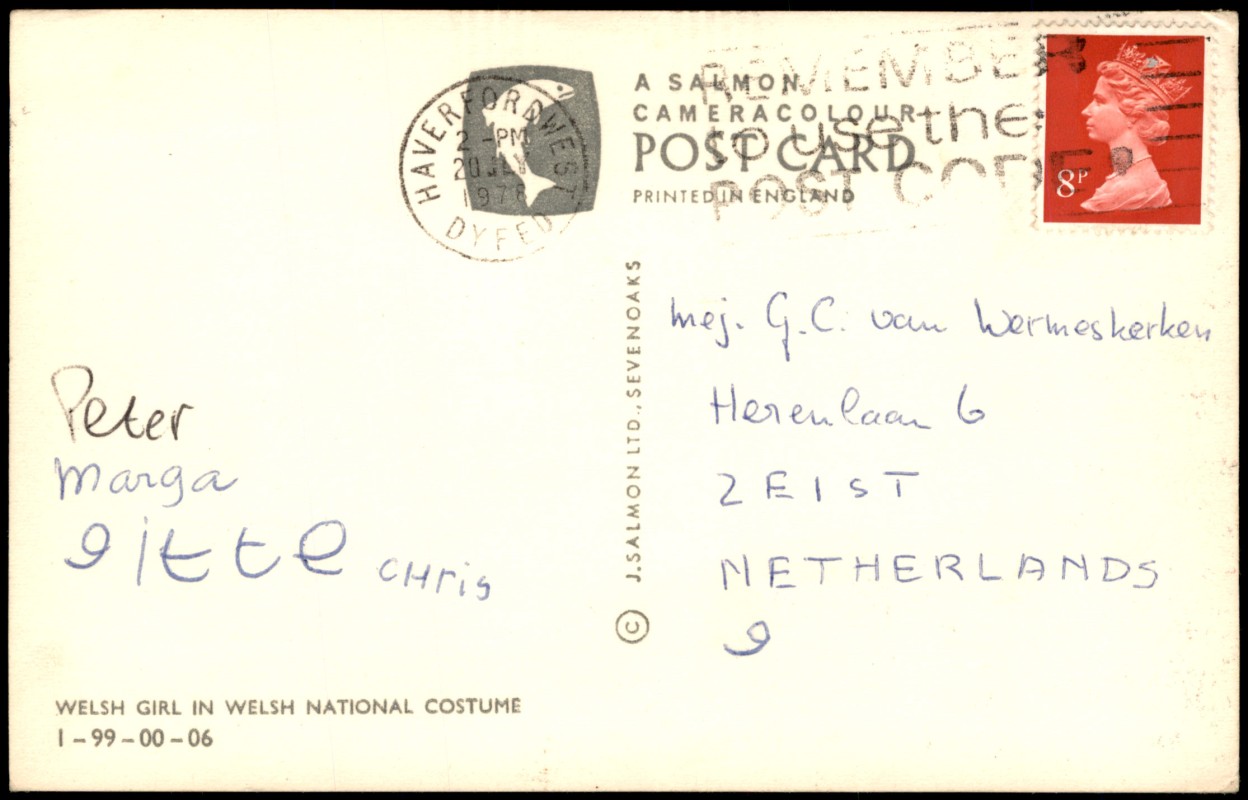 HAVERFORDWEST
2 - PM
20 JLY
1976
DYFED
REMEMBER
to use the
POST CODE
A SALMON
CAMERACOLOUR
POST CARD
PRINTED IN ENGLAND
8P
© J. SALMON LTD., SEVENOAKS
Mej. G.C. van Wermeskerken
Herenlaan 6
ZEIST
NETHERLANDS
Peter
Marga
gitte Chris
WELSH GIRL IN WELSH NATIONAL COSTUME
1-99-00-06